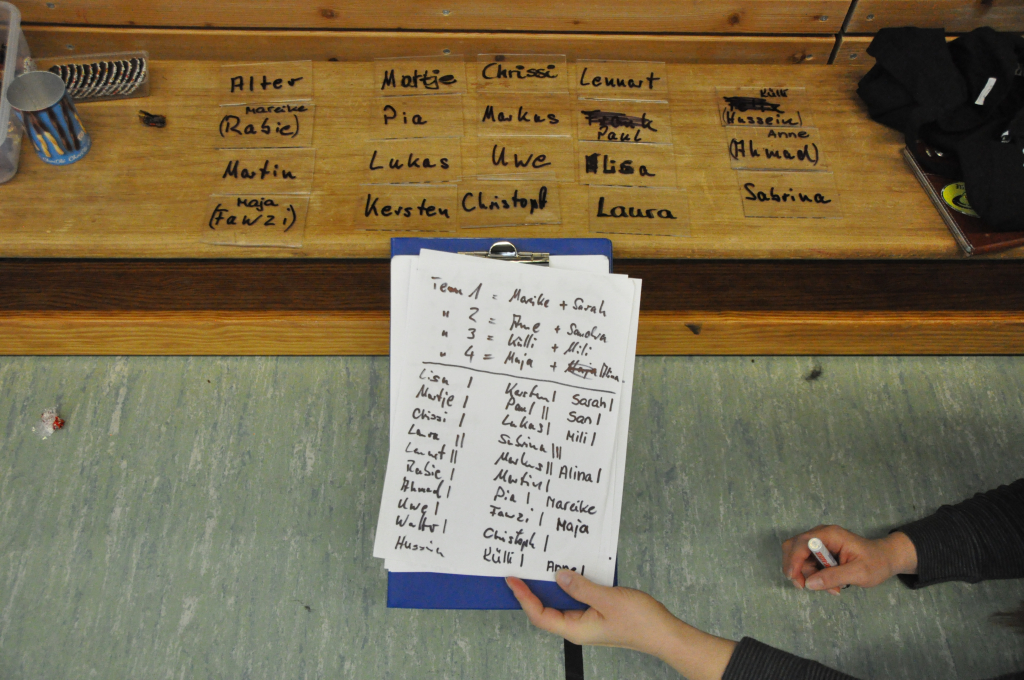 Alter
Mareike
(Rabie)
Martin
Maja
(Fawzi)
Mattje
Pia
Lukas
Kersten
Chrissi
Markus
Uwe
Christoph
Lennart
Frank
Paul
Lisa
Laura
Külli
(Hussein)
Anne
(Ahmad)
Sabrina
Team 1 = Mareike + Sarah
" 2 = Anne + Sandra
" 3 = Külli + Mili
" 4 = Maja + Alina
Lisa | Kersten | Sarah |
Martje | Paul || San |
Chissi | Lukas | Mili |
Laura || Sabrina |||
Lennart || Markus || Alina |
Rabie | Martin |
Ahmad | Pia | Mareike
Uwe | Fawzi | Maja
Walter | Christoph |
Hussein Külli | Anne |